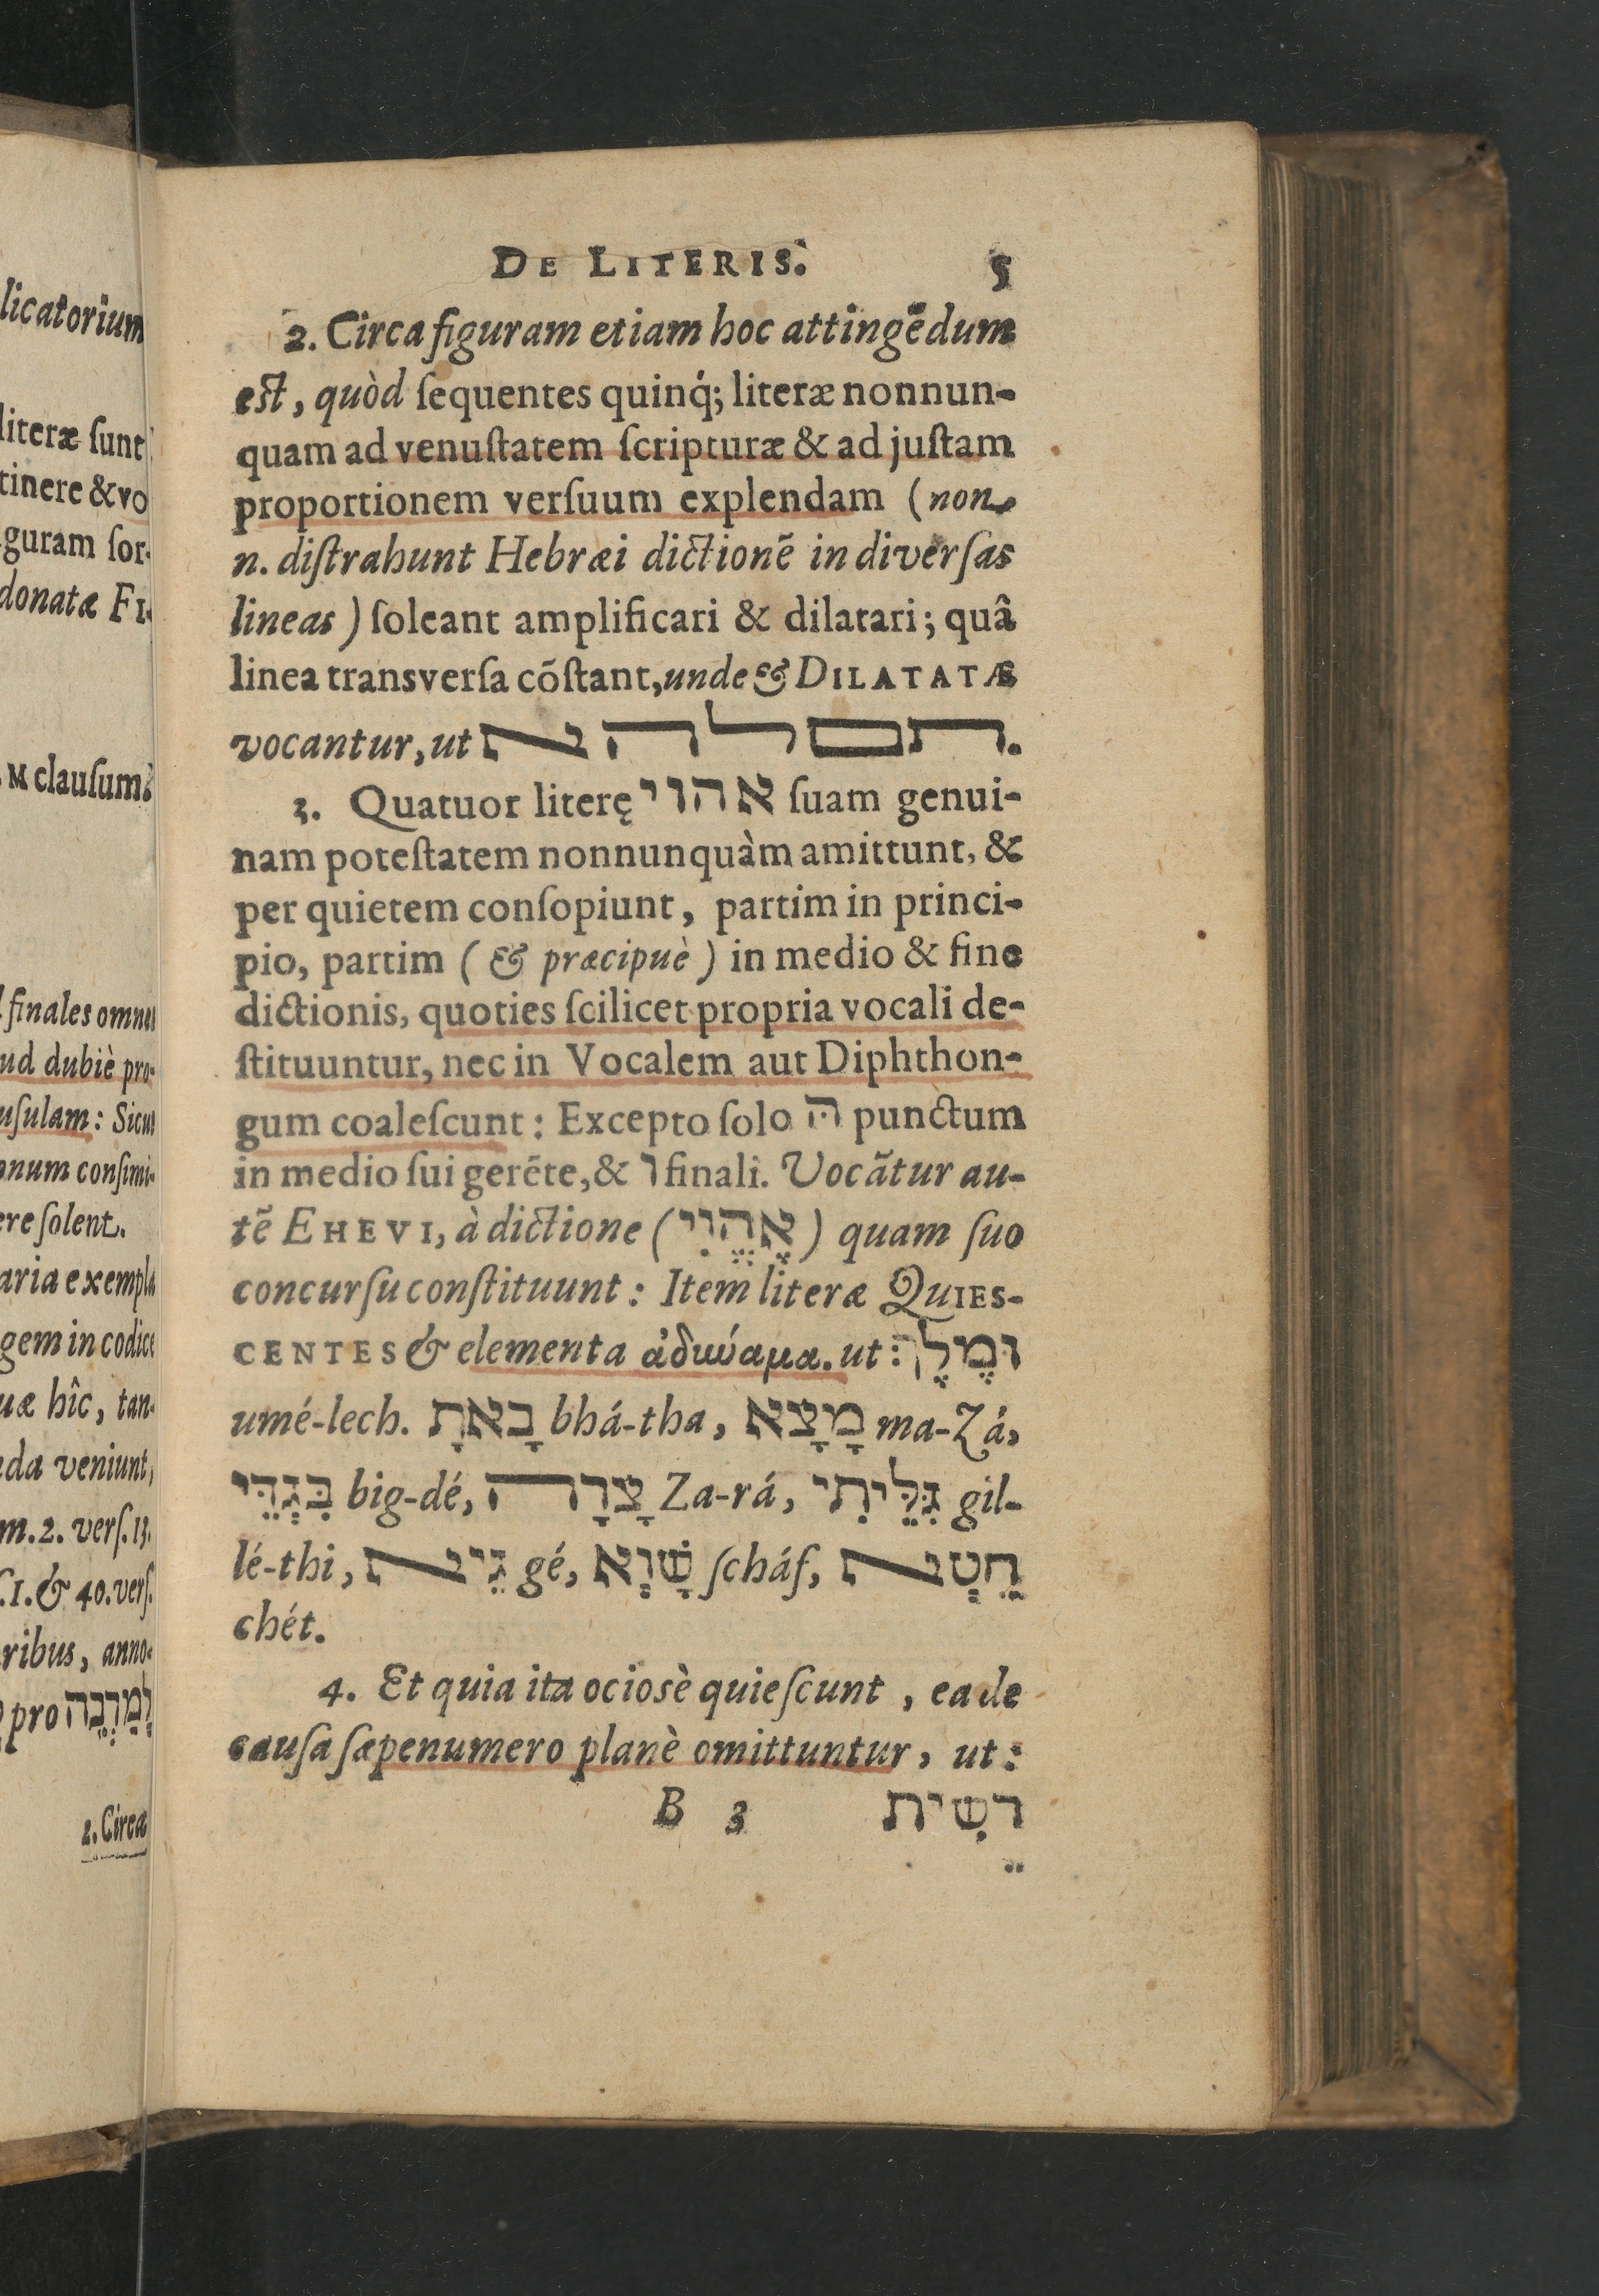 licatorium
literæ ſunt
tinere & vo
guram ſor-
donatæ FI-
M clauſum.
finales omnes
ud dubiè pro-
uſulam: Sicut
onum conſimi-
ere ſolent.
aria exempla
gem in codice
uæ hîc, tan-
da veniunt,
m. 2. verſ. 13.
1. & 40. verſ.
ribus, anno-
pro לְמַרְבֵּה
2. Circa
DE LITERIS. 5
2. Circa figuram etiam hoc attingēdum
eſt, quòd ſequentes quinq́; literæ nonnun-
quam ad venuſtatem ſcripturæ & ad juſtam
proportionem verſuum explendam (non
n. diſtrahunt Hebræi dictionē in diverſas
lineas) ſoleant amplificari & dilatari; quâ
linea transverſa cōſtant, unde & DILATATÆ
vocantur, ut ﬨﬦﬥﬣﬡ.
3. Quatuor literę אהוי ſuam genui-
nam poteſtatem nonnunquàm amittunt, &
per quietem conſopiunt, partim in princi-
pio, partim (& præcipuè) in medio & fine
dictionis, quoties ſcilicet propria vocali de-
ſtituuntur, nec in Vocalem aut Diphthon-
gum coaleſcunt: Excepto ſolo הּ punctum
in medio ſui gerēte, & ו finali. Vocātur au-
tē EHEVI, à dictione (אֶהֱוִי) quam ſuo
concurſu conſtituunt: Item literæ QUIES-
CENTES & elementa ἀδυνάμα. ut: וּמֶלֶךְ
umé-lech. בָאתָ bhá-tha, מָצָא ma-Zá,
בִּגְדֵּי big-dé, צָרָﬣ Za-rá, גִּלֵּיתִי gil-
lé-thi, גֵּיﬡ gé, שָׁוְא ſcháf, חֵטְﬡ
chét.
4. Et quia ita ociosè quieſcunt, ea de
cauſa ſæpenumero planè omittuntur, ut:
B 3 רֵשִׁית